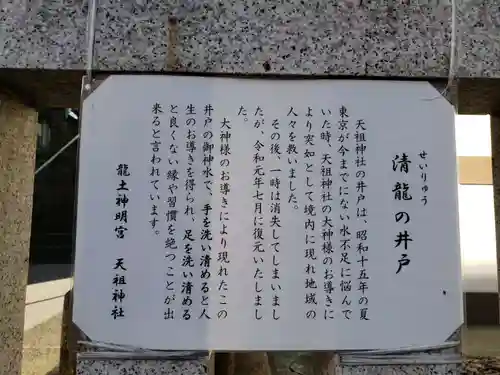 せいりゅう
清龍の井戸
天祖神社の井戸は、昭和十五年の夏
東京が今までにない水不足に悩んで
いた時、天祖神社の大神様のお導きに
より突如として境内に現れ地域の
人々を救いました。
その後、一時は消失してしまいまし
たが、令和元年七月に復元いたしまし
た。
大神様のお導きにより現れたこの
井戸の御神水で、手を洗い清めると人
生のお導きを得られ、足を洗い清める
と良くない縁や習慣を絶つことが出
来ると言われています。
龍土神明宮　天祖神社